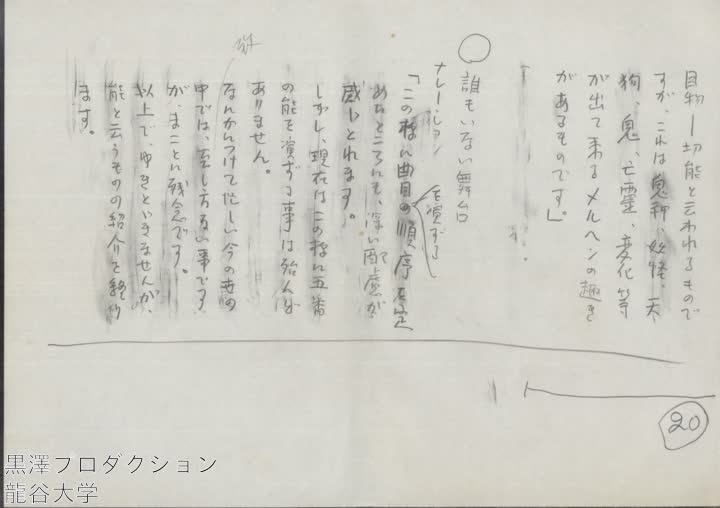 目物―切能と云われるもので
すが、これは鬼神、妖怪、天
狗、鬼、亡霊、変化等
が出て来るメルヘンの趣き
があるものです。」
○
誰もいない舞台
ナレーション
「この様に曲目の順序を定
を演ずる
めたところにも、深い配慮が
感じとれます。
しかし、現在はこの様に五番
の能を演ずる事は殆んど
ありません。
なんかんつけて忙しい今の世の
中では、致し方ない事です
が、まことに残念です。
以上で、ゆきとどきませんが、
能と云うものの紹介を終り
ます。
20
黒澤プロダクション
龍谷大学